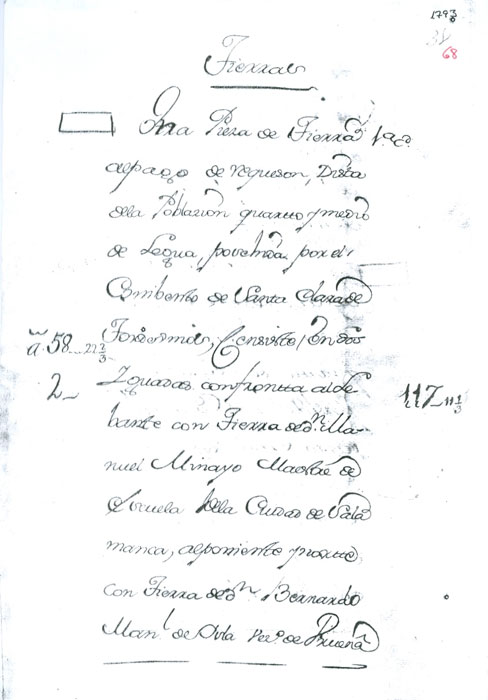 1793
68
Tierras
Una Pieza de Tierra
al pago de requeson, Dista
dela Poblazion quarto y medio
de Legua, posehida por el
Combento de Santa Clara de
Consiste, En dos
a 58..22 2/3
2_ Yguadas confronta al le
117_11 1/3
bante con Tierra de dn Ma-
nuel Minayo Maestre de
Escuela dela Ciudad de Sala
manca, al poniente y norte
con Tierra de dn Bernardo
Manl de Ovla Vezo de